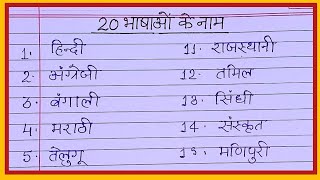 20 भाषाओं के नाम
1. हिन्दी
2. अंग्रेजी
3. बंगाली
4. मराठी
5. तेलुगू
11. राजस्थानी
12. तमिल
13. सिंधी
14. संस्कृत
15. मणिपुरी